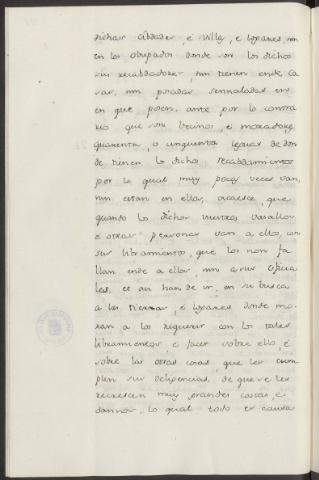 dichas cibdades, é villas, é logares, nin
en los obispados donde son los dichos
sus recabdadores, nin tienen ende ca
sas, nin posadas sennaladas en
en que posen, ante por lo contra
rio que son becinos, é moradores
quarenta, o cinquenta leguas de don
de tienen los dichos recabdamientos
por lo qual muy pocas veces van,
nin estan en ellas, acaesce, que
quando los dichos vuestros vasallos
é otras personas van a ellos, con
sus libramientos, que los non fa
llan ende a ellos, nin a sus oficia
les, et an han de ir, en su busca
a las tierras, é logares donde mo
ran a los requerir con los tales
libramientos é facer sobre ello, é
sobre las otras cosas, que les cum
plen sus deligencias, de que se les
recrescen muy grandes costas, é
dannos, lo qual todo es causa